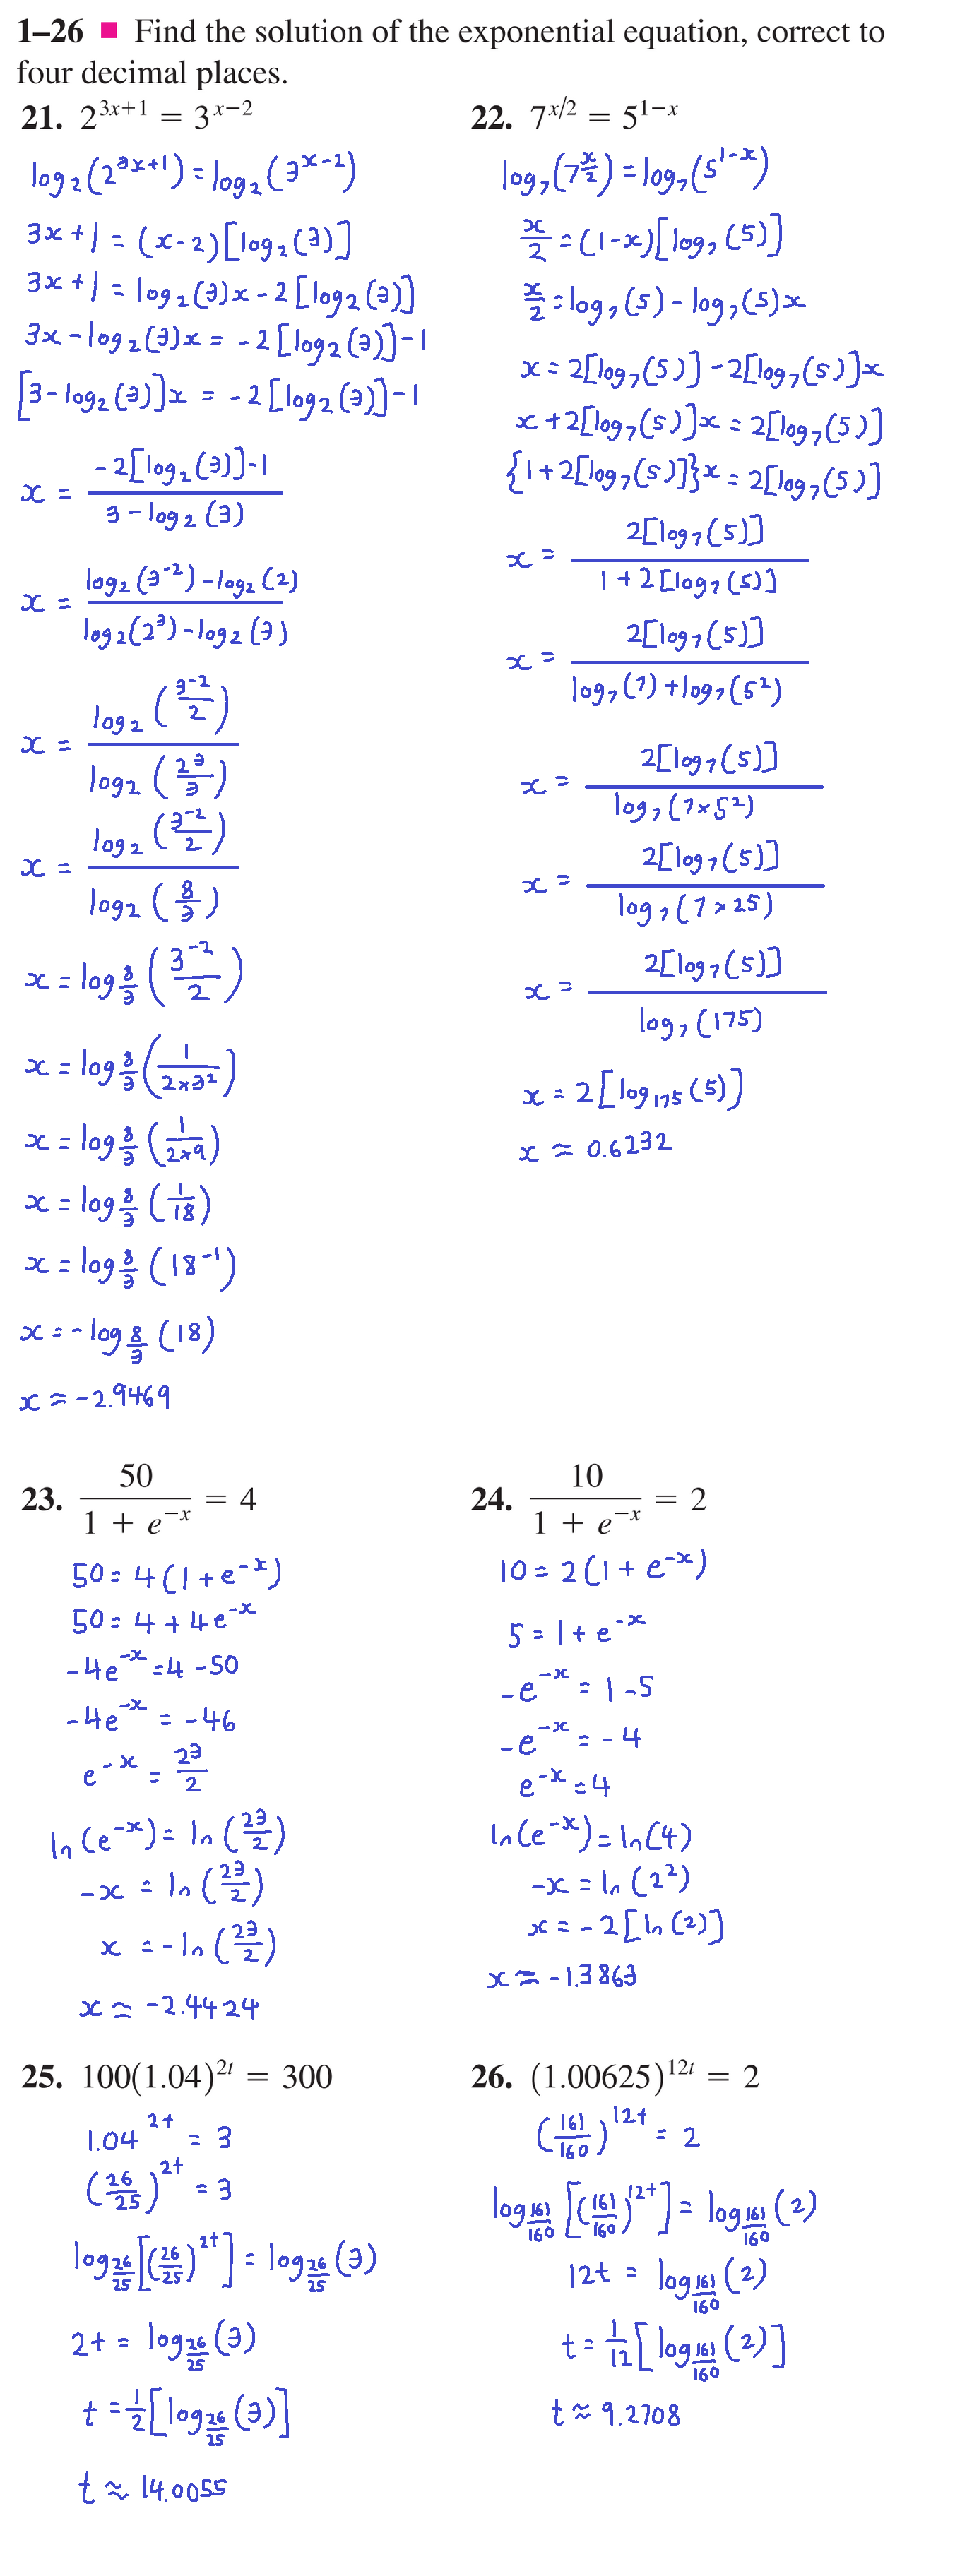 1–26 ■ Find the solution of the exponential equation, correct to
four decimal places.
21. 2^(3x+1) = 3^(x−2)
log₂(2^(3x+1)) = log₂(3^(x-2))
3x + 1 = (x-2)[log₂(3)]
3x + 1 = log₂(3)x - 2[log₂(3)]
3x - log₂(3)x = -2[log₂(3)] - 1
[3 - log₂(3)]x = -2[log₂(3)] - 1
x = (-2[log₂(3)] - 1)/(3 - log₂(3))
x = (log₂(3^(-2)) - log₂(2))/(log₂(2³) - log₂(3))
x = log₂(3^(-2)/2)/log₂(2³/3)
x = log₂(3^(-2)/2)/log₂(8/3)
x = log_(8/3)(3^(-2)/2)
x = log_(8/3)(1/(2×3²))
x = log_(8/3)(1/(2×9))
x = log_(8/3)(1/18)
x = log_(8/3)(18^(-1))
x = -log_(8/3)(18)
x ≈ -2.9469
22. 7^(x/2) = 5^(1−x)
log₇(7^(x/2)) = log₇(5^(1-x))
x/2 = (1-x)[log₇(5)]
x/2 = log₇(5) - log₇(5)x
x = 2[log₇(5)] - 2[log₇(5)]x
x + 2[log₇(5)]x = 2[log₇(5)]
{1 + 2[log₇(5)]}x = 2[log₇(5)]
x = 2[log₇(5)]/(1 + 2[log₇(5)])
x = 2[log₇(5)]/(log₇(7) + log₇(5²))
x = 2[log₇(5)]/log₇(7×5²)
x = 2[log₇(5)]/log₇(7×25)
x = 2[log₇(5)]/log₇(175)
x = 2[log₁₇₅(5)]
x ≈ 0.6232
23. 50/(1 + e^(−x)) = 4
50 = 4(1 + e^(-x))
50 = 4 + 4e^(-x)
-4e^(-x) = 4 - 50
-4e^(-x) = -46
e^(-x) = 23/2
ln(e^(-x)) = ln(23/2)
-x = ln(23/2)
x = -ln(23/2)
x ≈ -2.4424
24. 10/(1 + e^(−x)) = 2
10 = 2(1 + e^(-x))
5 = 1 + e^(-x)
-e^(-x) = 1 - 5
-e^(-x) = -4
e^(-x) = 4
ln(e^(-x)) = ln(4)
-x = ln(2²)
x = -2[ln(2)]
x ≈ -1.3863
25. 100(1.04)^(2t) = 300
1.04^(2t) = 3
(26/25)^(2t) = 3
log_(26/25)[(26/25)^(2t)] = log_(26/25)(3)
2t = log_(26/25)(3)
t = 1/2[log_(26/25)(3)]
t ≈ 14.0055
26. (1.00625)^(12t) = 2
(161/160)^(12t) = 2
log_(161/160)[(161/160)^(12t)] = log_(161/160)(2)
12t = log_(161/160)(2)
t = 1/12[log_(161/160)(2)]
t ≈ 9.2708